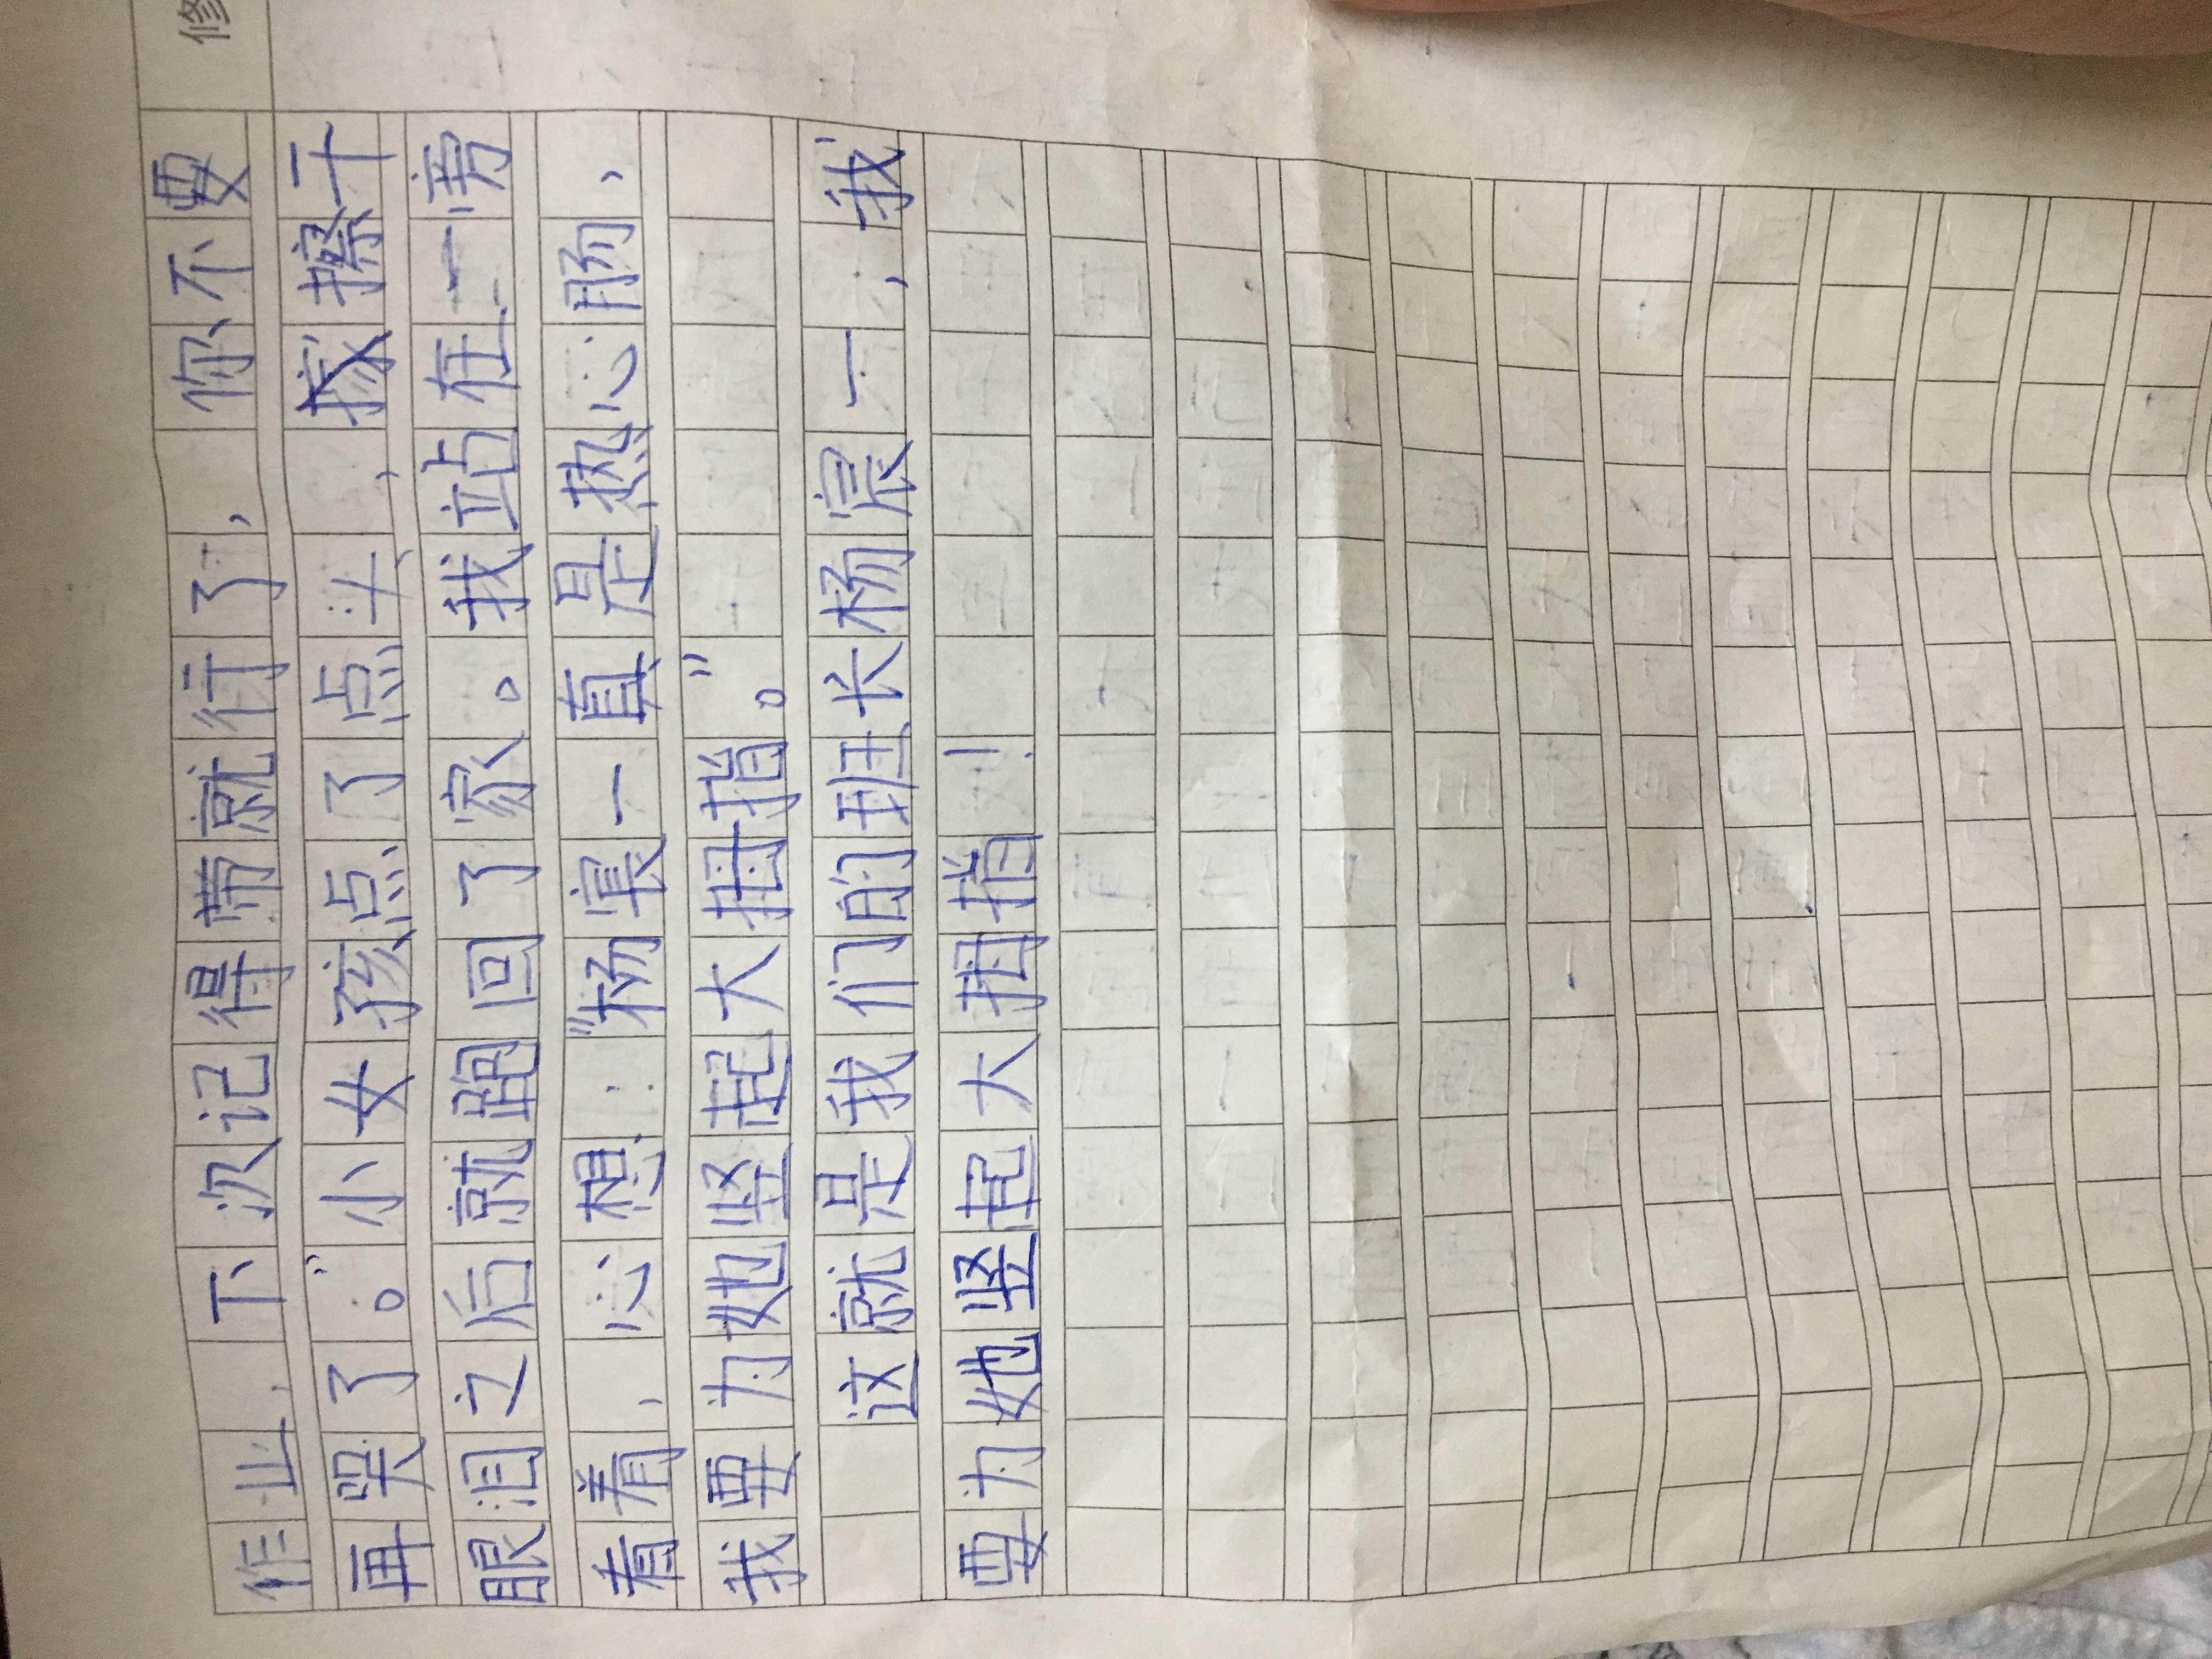 修
作业,下次记得带就行了,你不要
再哭了。”小女孩点了点头,擦干
眼泪之后就跑回了家。我站在一旁
看着,心想:“杨宸一真是热心肠,
我要为她竖起大拇指”。
这就是我们的班长杨宸一,我
要为她竖起大拇指!